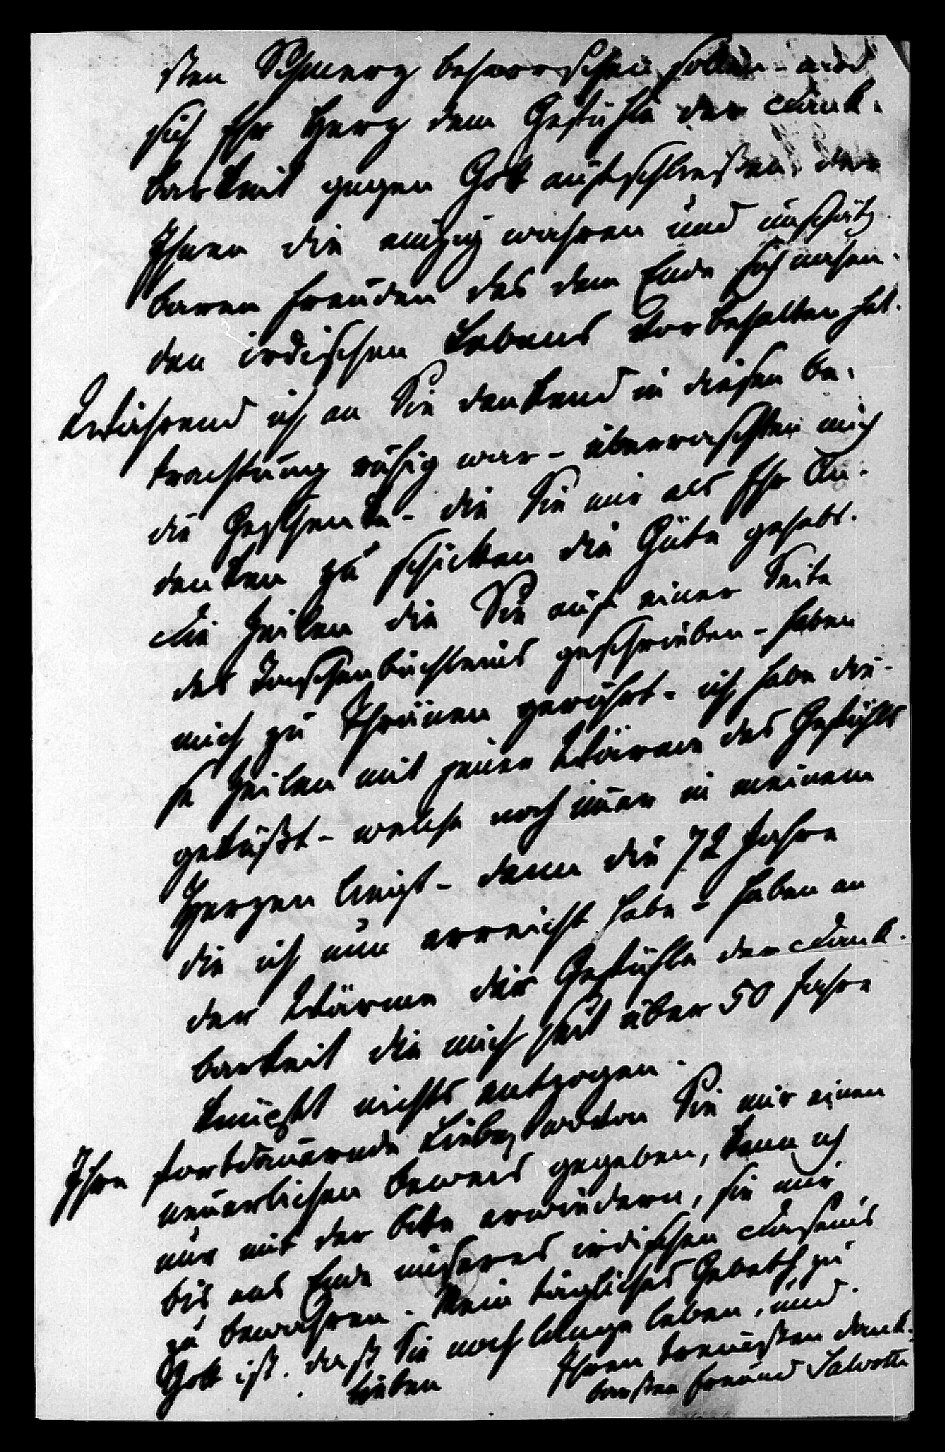 sten Schmerz beherrschen sollen - wird
sich Ihr Herz dem Gefühle der Dank-
barkeit gegen Gott aufschließen, der
Ihnen die einzig wahren und unschätz-
baren Freuden des dem Ende sich nahen-
den irdischen Lebens vorbehalten hat.
Während ich an Sie denkend in diesen Be-
trachtung ruhig war - überraschten mich
die Geschenke - die Sie mir als Ihr An-
denken zu schicken die Güte gehabt.
Die Zeilen die Sie auf einer Seite
des Taschenbüchleins geschrieben - haben
mich zu Thränen gerührt - ich habe die-
se Zeilen mit jener Wärme des Gefühls
geküßt - welche noch immer in meinem
Herzen liegt - denn die 72 Jahre
die ich nun erreicht habe - haben an
der Wärme der Gefühle der Dank-
barkeit die mich seit über 50 Jahre
knüpft nichts entzogen -
Ihre fortdauernde Liebe, wovon Sie mir einen
neuerlichen Beweis gegeben, kann ich
nur mit der Bitte erwiedern, sie mir
bis ans Ende unseres irdischen Daseins
zu bewahren. Mein tägliches Gebeth zu
Gott ist, daß Sie noch lange leben, und
lieben Ihren treuesten dank-
barsten Freund Salvotti